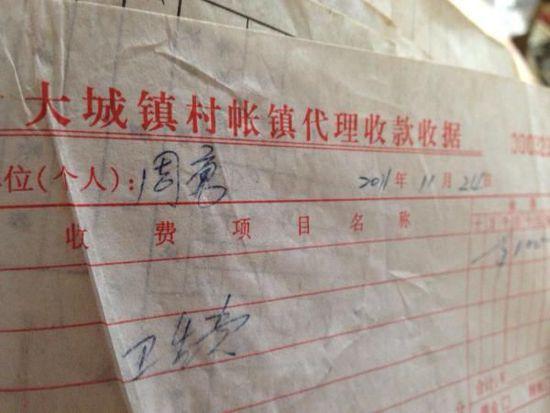 大城镇村帐镇代理收款收据
位(个人): 周 2011年11月24日
收费项目名称
卫生费
合计:¥